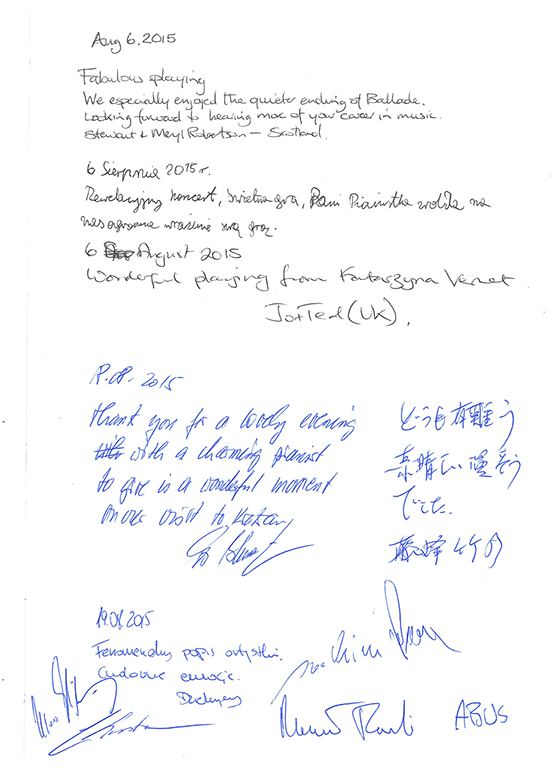 Aug 6. 2015
Fabulous playing
We especially enjoyed the quieter ending of Ballade.
Looking forward to hearing more of your career in music.
Stewart & Meryl Robertson – Scotland.
6 Sierpnia 2015 r.
Rewelacyjny koncert, świetna gra, Pani Pianistka zrobiła na
nas ogromne wrażenie swą grą.
6 August 2015
Wonderful playing from Katarzyna Vernet
Jo + Ted (UK).
2015
thank you for a lovely evening
with a charming pianist
to give us a wonderful moment
in our visit to
どうも有難う
素晴しい演奏
でした.
19.08.2015
Fenomenalny popis artystki.
Cudowne emocje.
Dziękujemy
ABUS